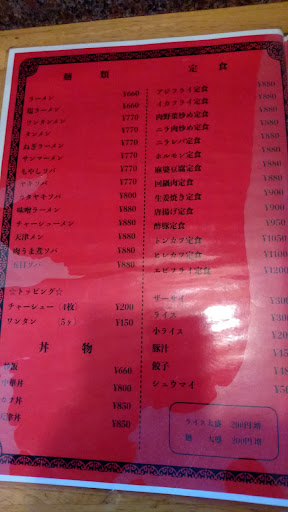 麺類
ラーメン ¥660
塩ラーメン ¥660
ワンタンメン ¥770
タンメン ¥770
ねぎラーメン ¥770
サンマーメン ¥770
もやしソバ ¥770
ソバ ¥770
ヤキソバ ¥800
味噌ラーメン ¥880
チャーシューメン ¥880
天津メン ¥880
肉うま煮ソバ ¥880
五目ソバ ¥880
☆トッピング☆
チャーシュー(4枚) ¥200
ワンタン (5ヶ) ¥150
丼物
飯 ¥660
中華丼 ¥800
丼 ¥850
天津丼 ¥850
定食
アジフライ定食 ¥850
イカフライ定食 ¥880
肉野菜炒め定食 ¥880
ニラ肉炒め定食 ¥880
ニラレバ定食 ¥880
ホルモン定食 ¥880
麻婆豆腐定食 ¥880
回鍋肉定食 ¥880
生姜焼き定食 ¥900
唐揚げ定食 ¥900
酢豚定食 ¥950
トンカツ定食 ¥1050
ヒレカツ定食 ¥1100
エビフライ定食 ¥1200
ザーサイ
ライス
小ライス
豚汁
餃子
シュウマイ
ライス大盛 200円増
麺 大盛 200円増